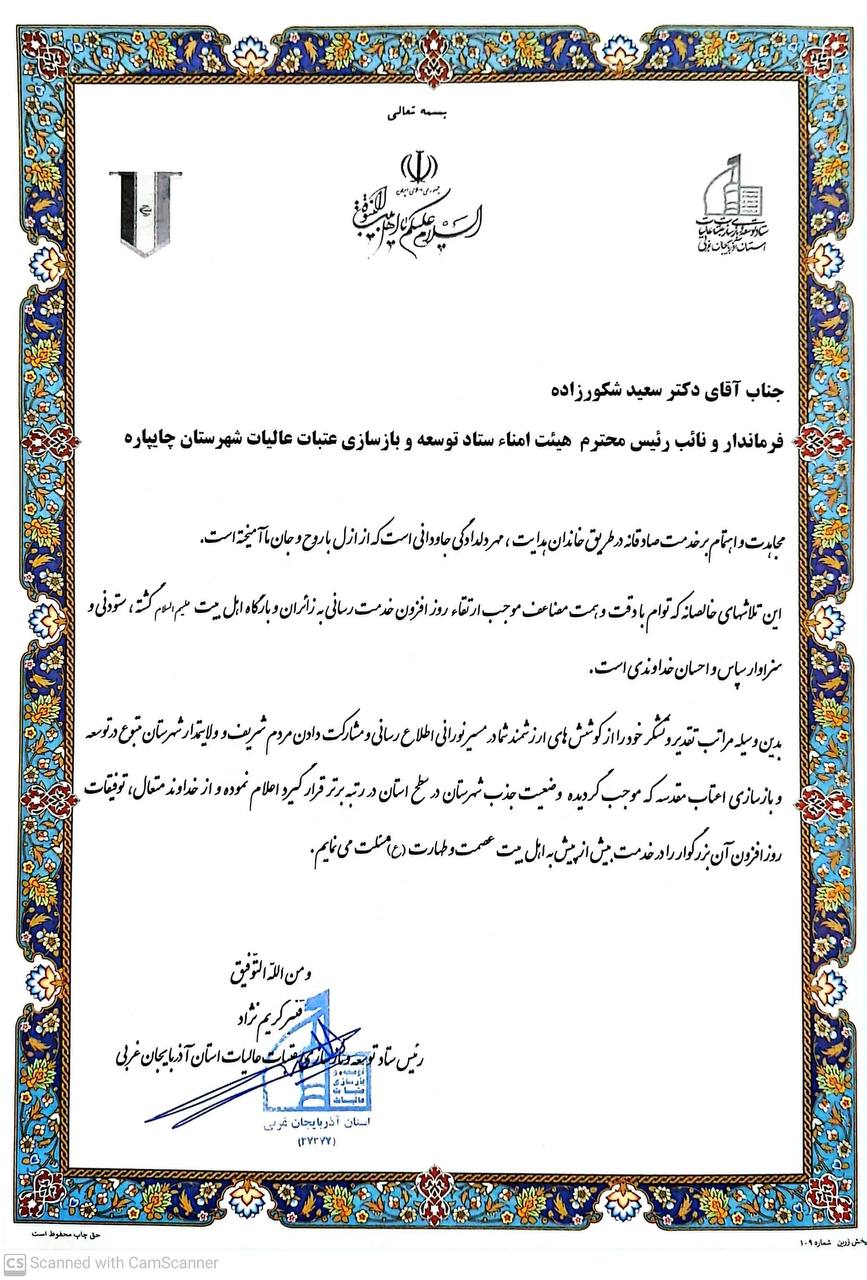 بسمه تعالی
جمهوری اسلامی ایران
السلام علیکم یا اهل بیت النبوة
ستاد توسعه و بازسازی عتبات عالیات
استان آذربایجان غربی
جناب آقای دکتر سعید شکورزاده
فرماندار و نائب رئیس محترم هیئت امناء ستاد توسعه و بازسازی عتبات عالیات شهرستان چایپاره
مجاهدت و اهتمام بر خدمت صادقانه در طریق خاندان هدایت ، مهر دلدادگی جاودانی است که از ازل با روح و جان ما آمیخته است.
این تلاشهای خالصانه که توام با دقت و همت مضاعف موجب ارتقاء روز افزون خدمت رسانی به زائران و بارگاه اهل بیت علیهم السلام گشته ، ستودنی و
سزاوار سپاس و احسان خداوندی است.
بدین وسیله مراتب تقدیر و تشکر خود را از کوشش های ارزشمند شما در مسیر نورانی اطلاع رسانی و مشارکت دادن مردم شریف و ولایتمدار شهرستان متبوع در توسعه
و بازسازی اعتاب مقدسه که موجب گردیده وضعیت جذب شهرستان در سطح استان در رتبه برتر قرار گیرد اعلام نموده و از خداوند متعال، توفیقات
روز افزون آن بزرگوار را در خدمت بیش از پیش به اهل بیت عصمت و طهارت (ع) مسئلت می نمایم.
ومن الله التوفیق
قنبر کریم نژاد
رئیس ستاد توسعه و بازسازی عتبات عالیات استان آذربایجان غربی
توسعه و
بازسازی
عتبات
عالیات
استان آذربایجان غربی
(۲۷۳۷۷)
حق چاپ محفوظ است
پخش زرین شماره ۱۰۹
CS Scanned with CamScanner